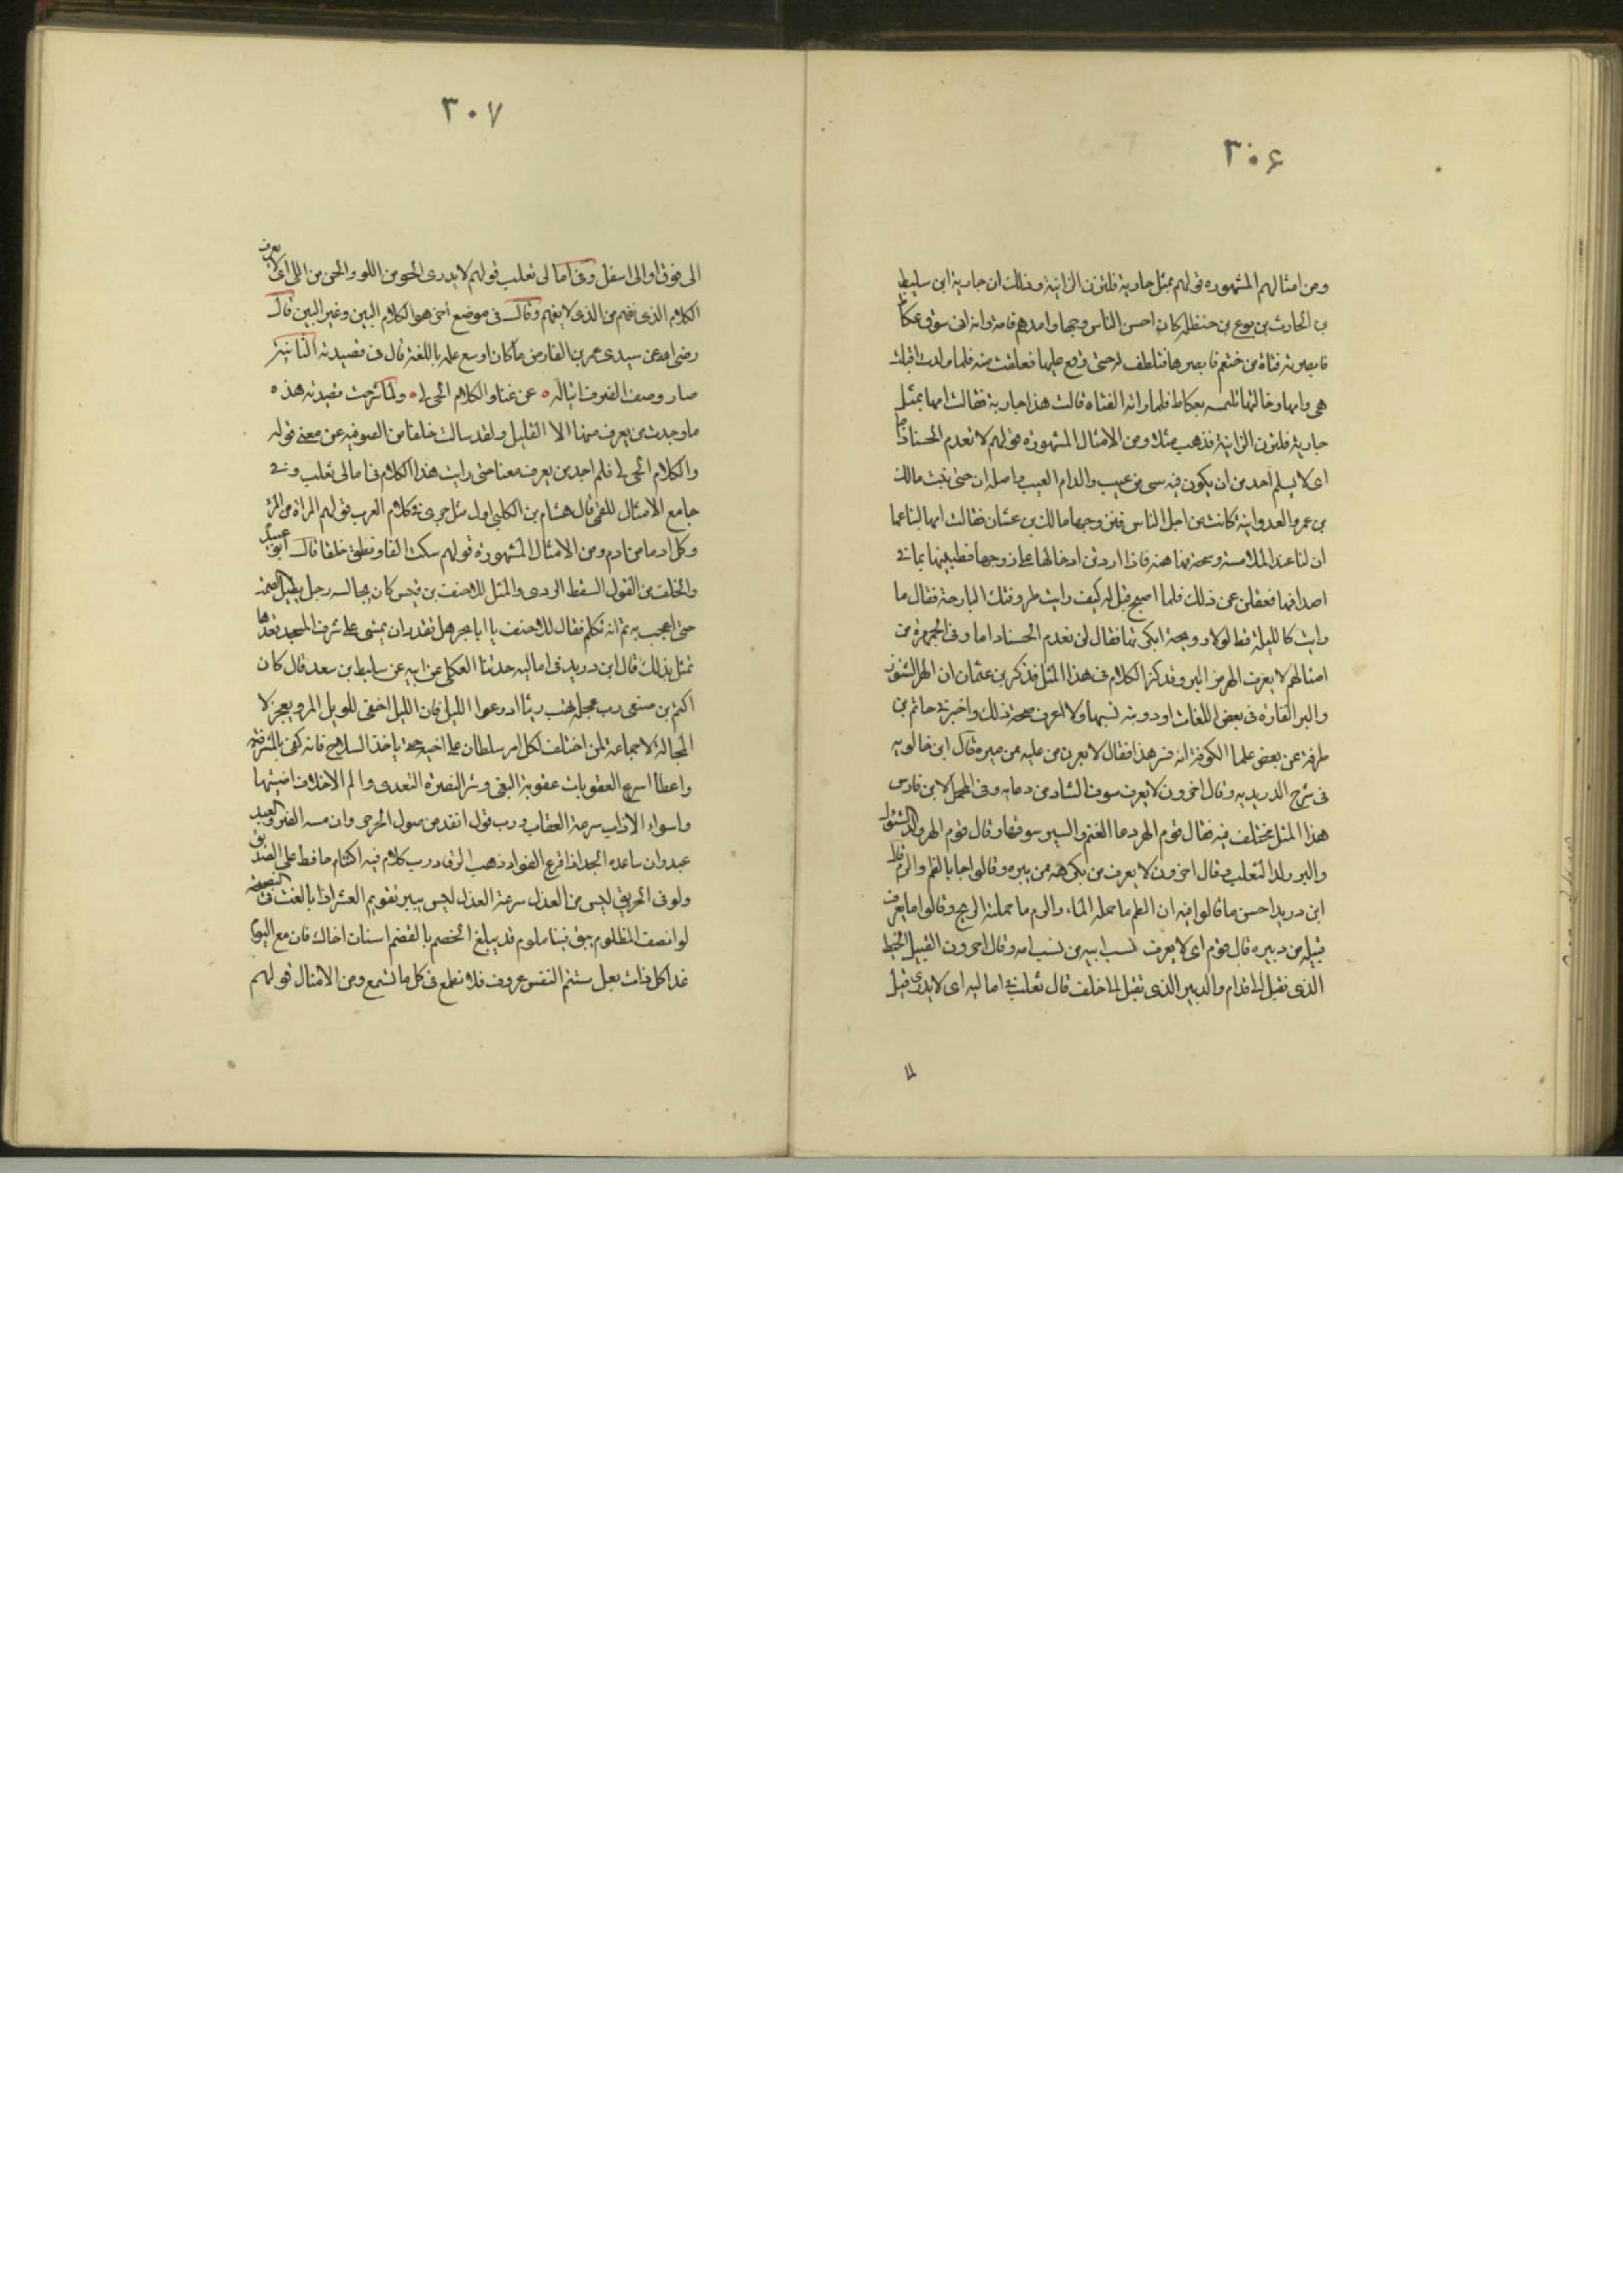 ٣٠۶
ومن امثالهم المشهوره قولهم بمثل جارية فلتزن الزانية وذلك ان جارية ابن سليط
بن الحارث بن يربوع بن حنظله كان احسن الناس وجها وامدهم قامة وانه اتى سوق عكاظ
فابصرته فتاة من خثعم فابصرها فتلطف لها حتى وقع عليها فعلقت منه فلما ولدت اقبلت
هى وامها وخالتها تلتمسه بعكاظ فلما راته الفتاه قالت هذا جارية فقالت امها بمثل
جارية فلتزن الزانية فذهب مثلا ومن الامثال المشهوره قولهم لا تعدم الحسنا ذاما
اى لا يسلم احد من ان يكون فيه شى من عيب والذام العيب واصله ان حبى بنت مالك
بن عمرو العدوانية كانت من اجمل الناس فتزوجها مالك بن غسان فقالت امها لتباعها
ان لنا عند الملامسة رشحة فيها هنة فاذا اردتن ادخالها على زوجها فطيبنها بما فى
اصدافها فغفلن عن ذلك فلما اصبح قيل له كيف رايت طروقتك البارحة فقال ما
رايت كالليلة قط لولا رويحة انكرتها فقال لن تعدم الحسنا ذاما وفى الجمهره من
امثالهم لا يعرف الهر من البر وقد كثر الكلام فى هذا المثل فذكر بن عثمان ان الهر السنور
والبر الفاره فى بعض اللغات او دويبه تشبهها ولا اعرف صحة ذلك واخبر نى حاتم بن
طرفة عن بعض علما الكوفة انه فسر هذا فقال لا يعرف من يهر عليه ممن يبره وقال ابن خالويه
فى شرح الدريديه وقال اخرون لا يعرف سوق الشاه من دعايه وفى المجمل لابن فارس
هذا المثل مختلف فيه فقال قوم الهر دعا الغنم والبر سوقها وقال قوم الهر ولد السنور
والبر ولد الثعلب وقال اخرون لا يعرف من يكرهه ممن يبره وقالوا جا بالطم والرم قال
ابن دريد احسن ما قالوا فيه ان الطم ما حمله الماء والرم ما حملته الريح وقالوا ما يعرف
قبيله من دبيره قال قوم اى لا يعرف نسب ابيه من نسب امه وقال اخرون القبيل الخيط
الذى تفتل الى قدام والدبير الذى تفتل الى خلف قال ثعلب فى اماليه اى لا يدرى فتل
٣٠٧
الى فوق او الى اسفل وفى امالى ثعلب قولهم لا يدرى الحو من اللو والحى من اللى اى لا يعرف
الكلام الذى تفهم من الذى لا يفهم وقال فى موضع اخر هو الكلام البين وغير البين قال
رضى الله عن سيدى عمر بن الفارض ما كان اوسع علمه باللغة قال فى قصيدته الثانية
صار وصف الضر ذاتيا له ٥ عن عناء والكلام الحى لى ٥ ولما شرحت قصيدته هذه ٥
ما وجدت من يعرف منها الا القليل ولقد سالت خلقا من الصوفيه عن معنى قوله
والكلام الحى لى فلم اجد من يعرف معناه حتى رايت هذا الكلام فى امالى ثعلب وفى
جامع الامثال للقمى قال هشام بن الكلبى اول مثل جرى فى كلام العرب قولهم المراة من المرء
وكل ادما من ادم ومن الامثال المشهوره قولهم سكت الفا ونطق خلفا قال ابو عبيد
والخلف من القول السقط الردى والمثل للاحنف بن قيس كان يجالسه رجل يطيل الصمت
حتى اعجب به ثم انه تكلم فقال للاحنف يا ابا بحر هل تقدر ان يمشى على شرف المسجد فعندها
تمثل بذلك قال ابن دريد فى اماليه حدثنا العكلى عن ابيه عن سليط بن سعد قال كان
اكثم بن صيفى رب عجلة تهب ريثا ادرعوا الليل فان الليل اخفى للويل المرو يعجز لا
المحالة لا جماعة لمن اختلف لكل امر سلطان على اخيه حتى ياخذ السلاح فانه كفى بالمشرفيه
واعظا اسرع العقوبات عقوبة البغى وشر النصرة التعدى والم الاخلاق اضيقها
واسواء الاداب سرعة العقاب ورب قول انفذ من صول الحر حر وان مسه الضر والعبد
عبد وان ساعده الجد اذا فزع الفواد ذهب الرقاد رب كلام فيه اكتتام حافظ على الصديق
ولو فى الحريق ليس من العدل سرعة العذل ليس بيسير تقويم العسر اذا بالغت فى النصيحة
لو انصف المظلوم لم يبق فينا ملوم قد يبلغ الخضم بالقضم اسنان اخاك فان مع اليوم
غدا كل ذات بعل ستئيم النفس عروف فلا تطمع فى كل ما تسمع ومن الامثال قولهم